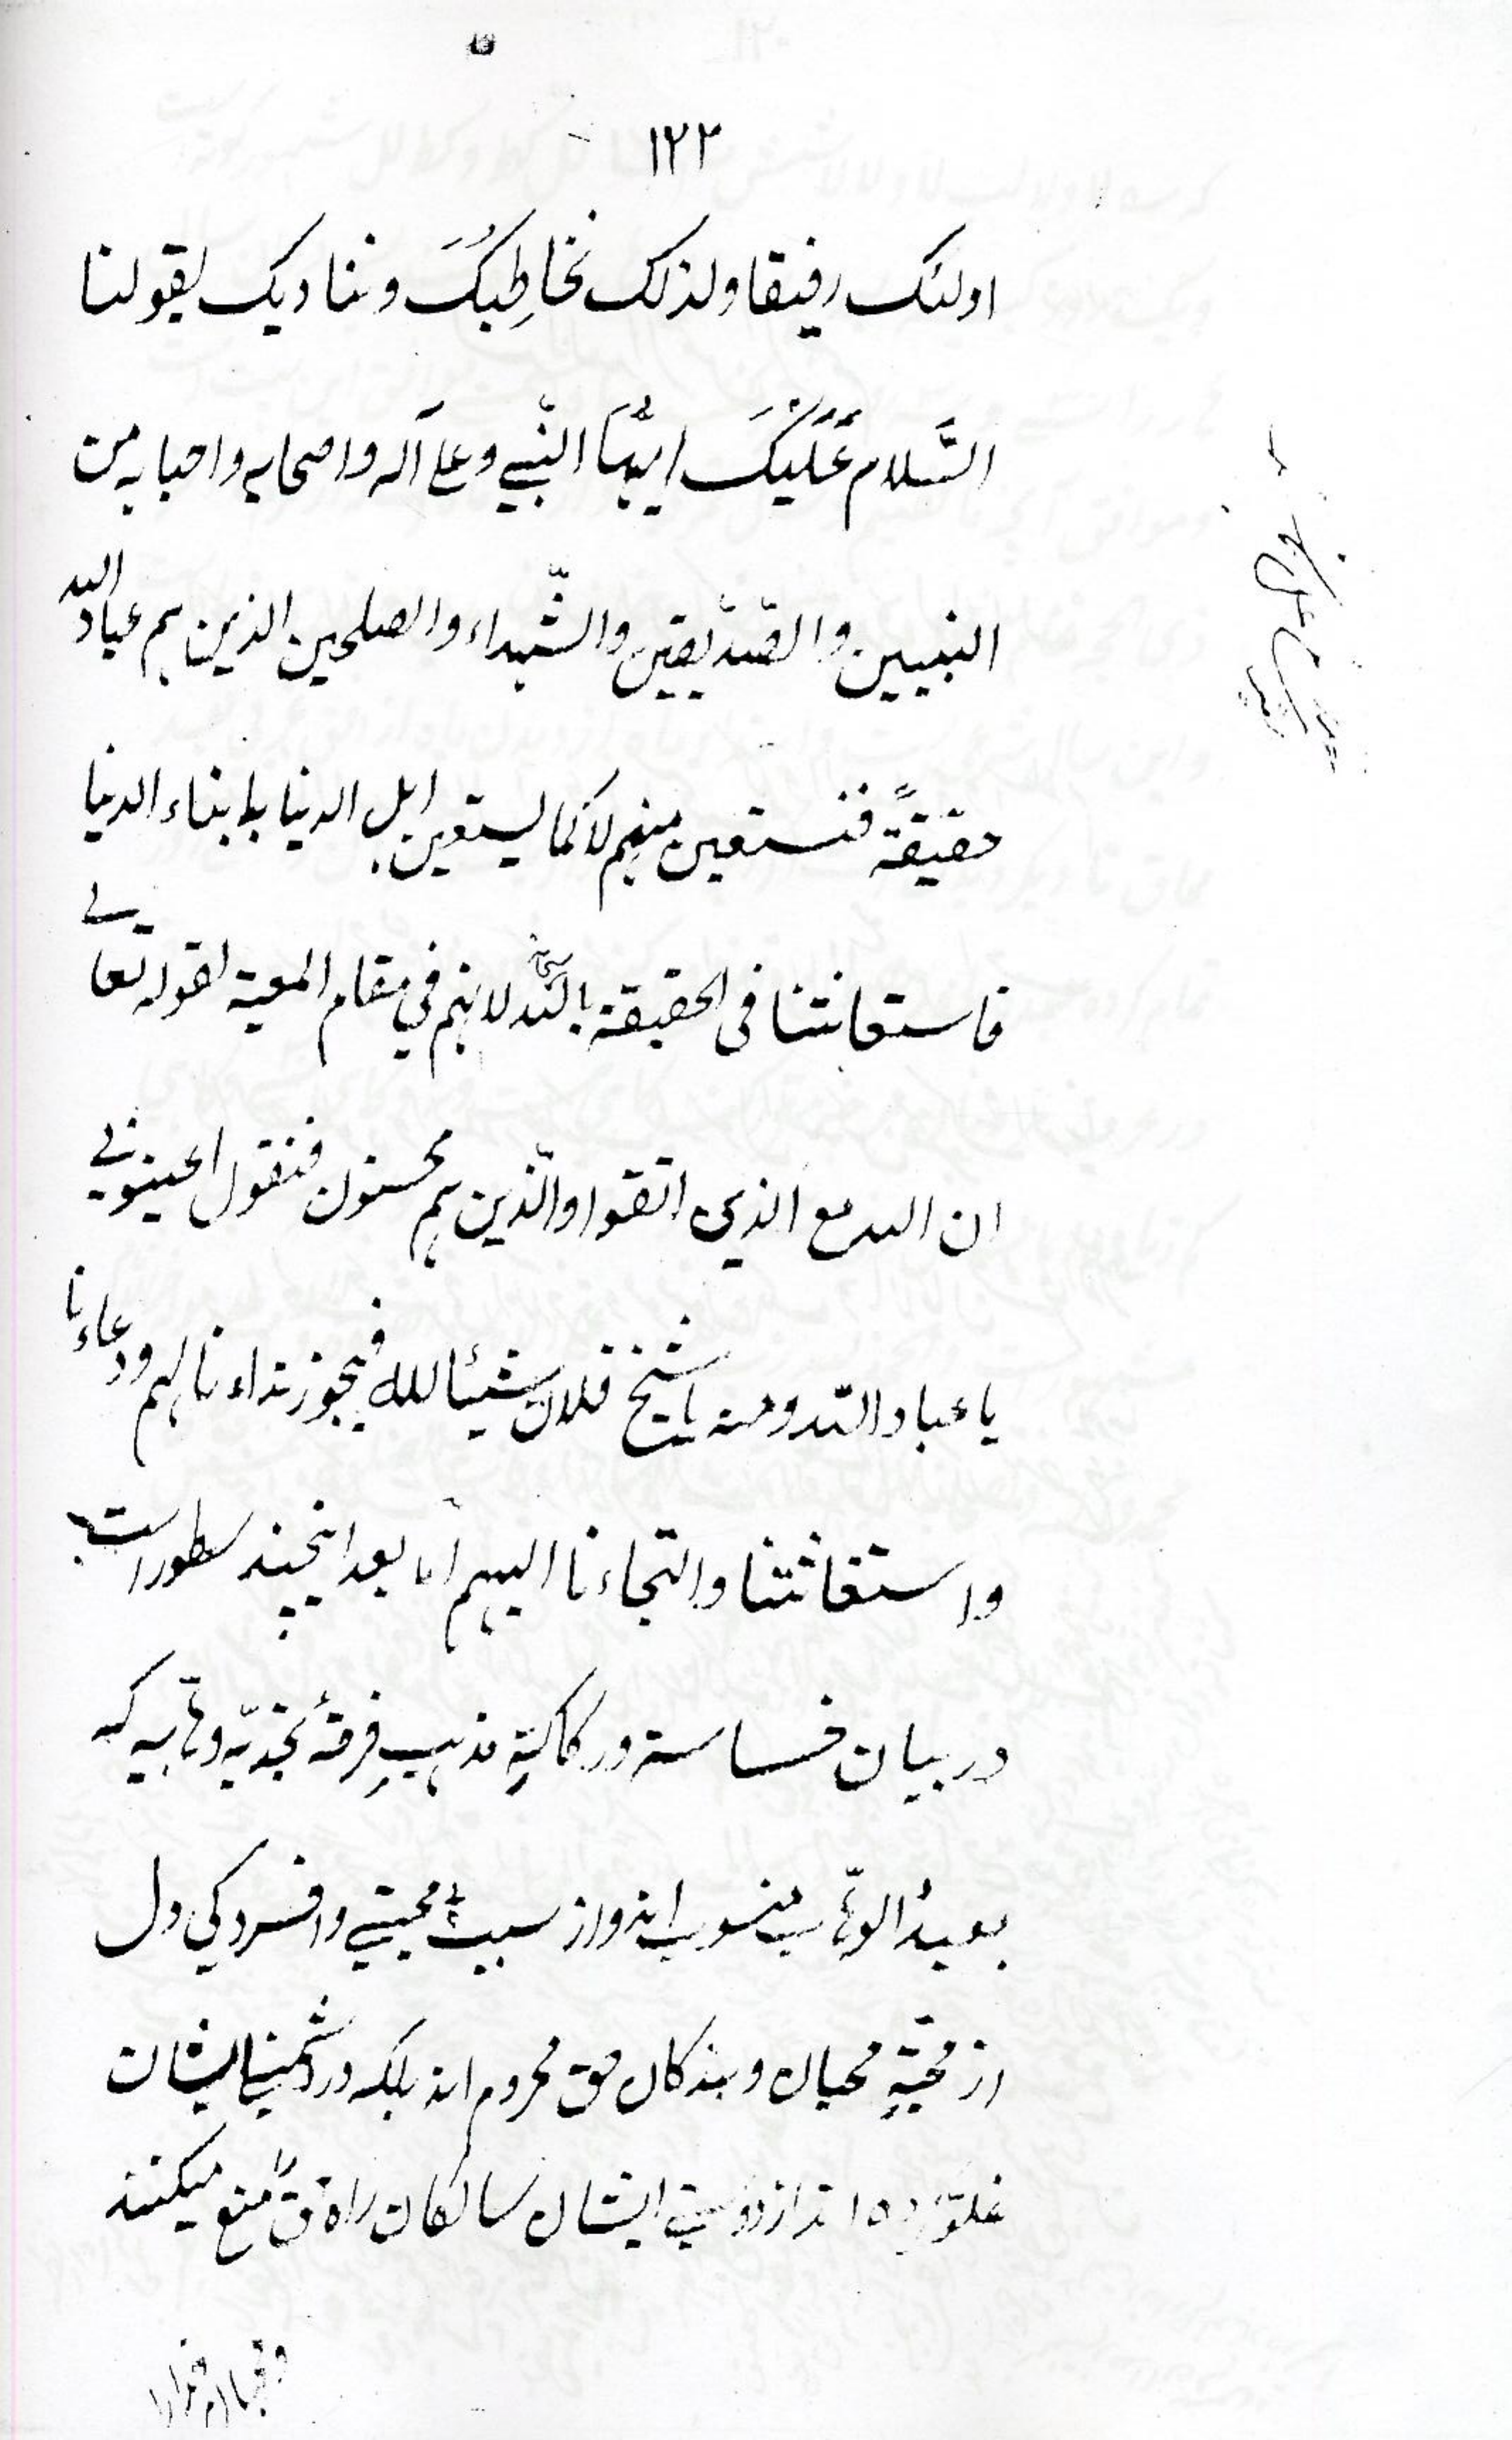 ١٢٢
اولئک رفیقا ولذلک نخاطِبکَ و ننادیک لقولنا
السَّلام عَلَیکَ ایهَا النّبی و علی آله واصحابه واحبابه من
النبیین والصّدّیقین والشّهداء والصلحین الذین هم عباد الله
حقیقةً فنستعین منهم لا کما یستعین اهل الدنیا بابناء الدنیا
فاستعانتنا فی الحقیقة بالله سبحانه لانهم فی مقام المعیة لقوله تعالی
ان الله مع الذین اتقوا والّذین هم محسنون فنقول اعینونی
یا عباد الله ومنه یا شیخ فلان شیئا لله فیجوز نداءنا لهم ودعاءنا
واستغاثتنا والتجاءنا الیهم اما بعد اینچند سطور است
در بیان خساسة ورکاکةِ مذهبِ فرقهٔ نجدیّه وهّابیه که
بعبدُ الوهّاب منسوب اند واز سبب بی محبتی وافسردکی دل
از محبّةِ محبان وبندکان حق محروم اند بلکه در دشمنی ایشان
غلوّ اند از دوستی ایشان سالکان راه حق را منع میکنند